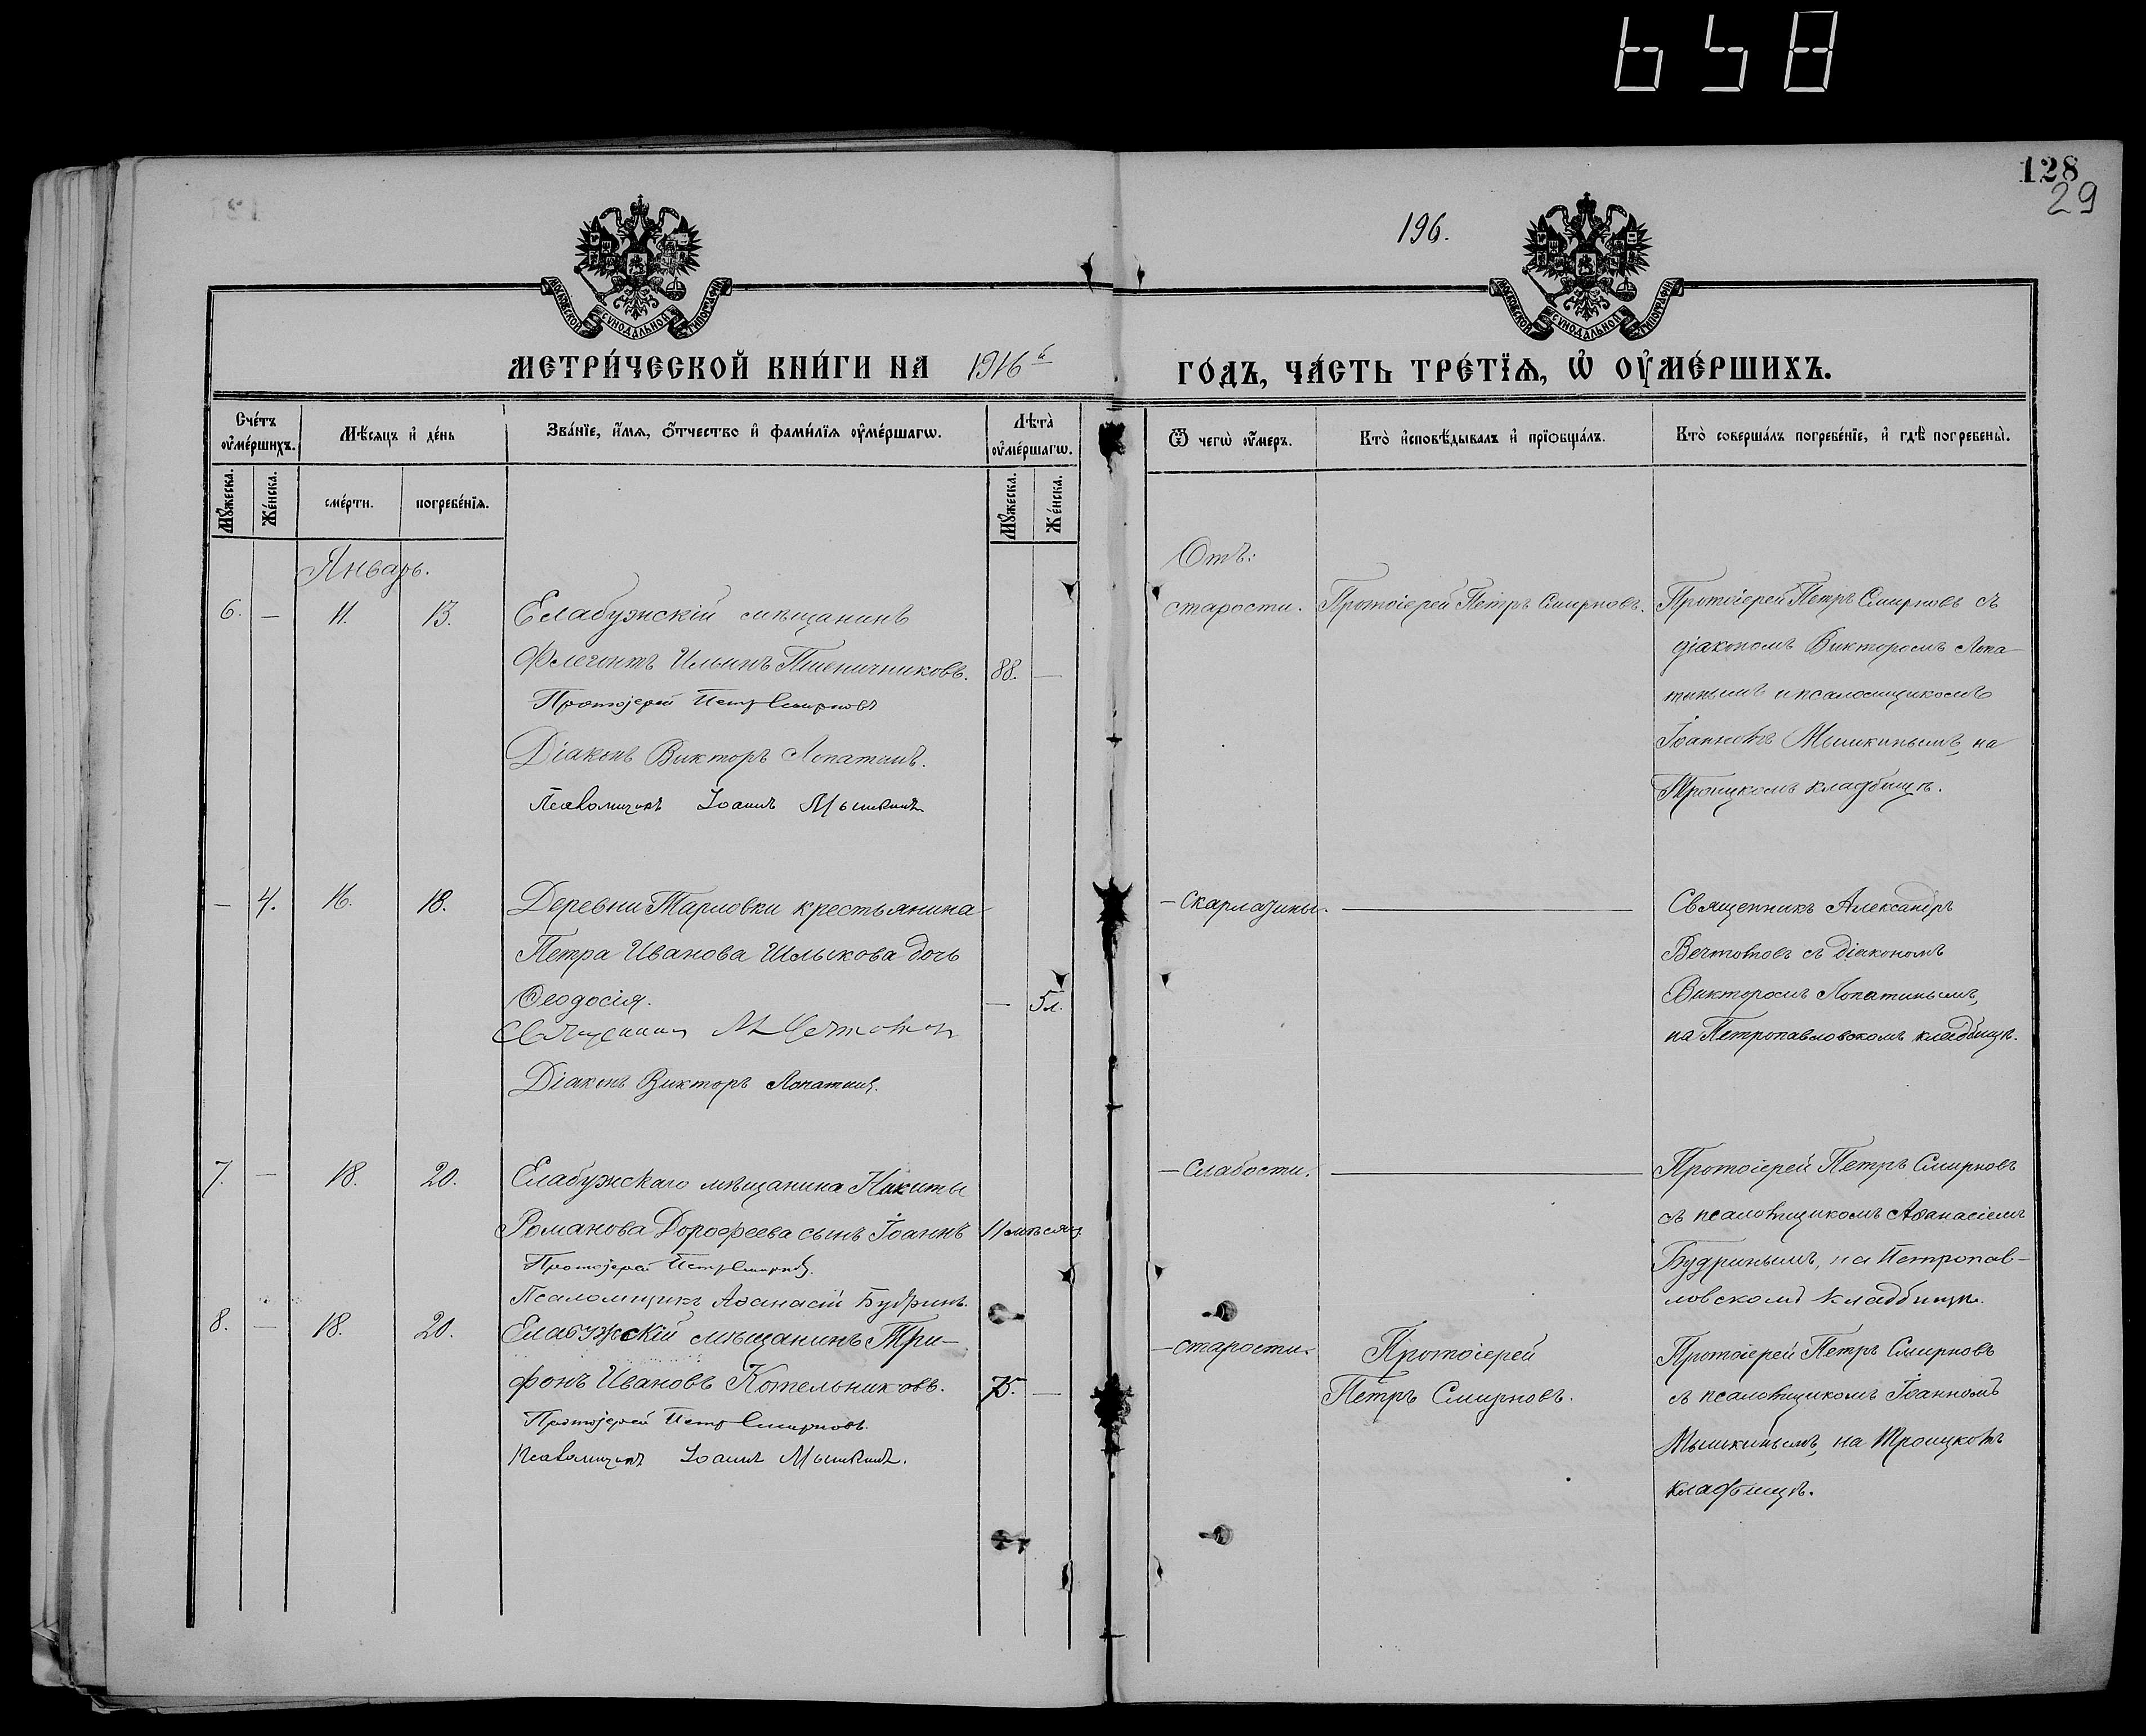 658
128
29
196.
МОСКОВСКОЙ СѴНОДАЛЬНОЙ ТИПОГРАФІИ
МОСКОВСКОЙ СѴНОДАЛЬНОЙ ТИПОГРАФІИ
МЕТРИ́ЧЕСКОЙ КНИ́ГИ НА 1916й ГО́ДЪ, ЧА́СТЬ ТРЕ́ТІѦ, Ѡ ОУ҆МЕ́РШИХЪ.
Сче́тъ оу҆ме́ршихъ.
Мѣ́сяцъ и҆ де́нь
Зва́нїе, и҆́мѧ, ѻ҆́тчество и҆ фами́лїѧ оу҆ме́ршагѡ.
Лѣ́та оу҆ме́ршагѡ.
Ѿ чегѡ̀ оу҆́мер.
Кто̀ и҆сповѣ́дывалъ и҆ прїѡбща́лъ.
Кто̀ соверша́лъ погребе́нїе, и҆ гдѣ̀ погребены̀.
Мꙋ́жеска.
Же́нска.
сме́рти.
погребе́нїѧ.
Мꙋ́жеска.
Же́нска.
Январь.
Отъ:
6. — 11. 13. Елабужскій мѣщанинъ
Флегонтъ Ильинъ Пшеничниковъ. 88. —
Протоіерей Петръ Смирновъ
Діаконъ Викторъ Лопатинъ.
Псаломщикъ Іоаннъ Мышкинъ
старости. Протоіерей Петръ Смирновъ. Протоіерей Петръ Смирновъ съ
діакономъ Викторомъ Лопа-
тинымъ и псаломщикомъ
Іоанномъ Мышкинымъ, на
Троицкомъ кладбищѣ.
— 4. 16. 18. Деревни Тарловки крестьянина
Петра Иванова Шлыкова дочь
Ѳеодосія. — 5 л.
Священникъ
Діаконъ Викторъ Лопатинъ.
— скарлатины. — Священникъ Александръ
Вечтомовъ съ діакономъ
Викторомъ Лопатинымъ,
на Петропавловскомъ кладбищѣ.
7. — 18. 20. Елабужскаго мѣщанина Никиты
Романова Дорофеева сынъ Іоаннъ 11 мѣсяц.
Протоіерей Петръ Смирновъ.
Псаломщикъ Аѳанасій Будринъ.
— слабости. — Протоіерей Петръ Смирновъ
съ псаломщикомъ Аѳанасіемъ
Будринымъ, на Петропав-
ловскомъ кладбищѣ.
8. — 18. 20. Елабужскій мѣщанинъ Три-
фонъ Ивановъ Котельниковъ. 75. —
Протоіерей Петръ Смирновъ.
Псаломщикъ Іоаннъ Мышкинъ.
— старости. Протоіерей
Петръ Смирновъ.
Протоіерей Петръ Смирновъ
съ псаломщикомъ Іоанномъ
Мышкинымъ, на Троицкомъ
кладбищѣ.